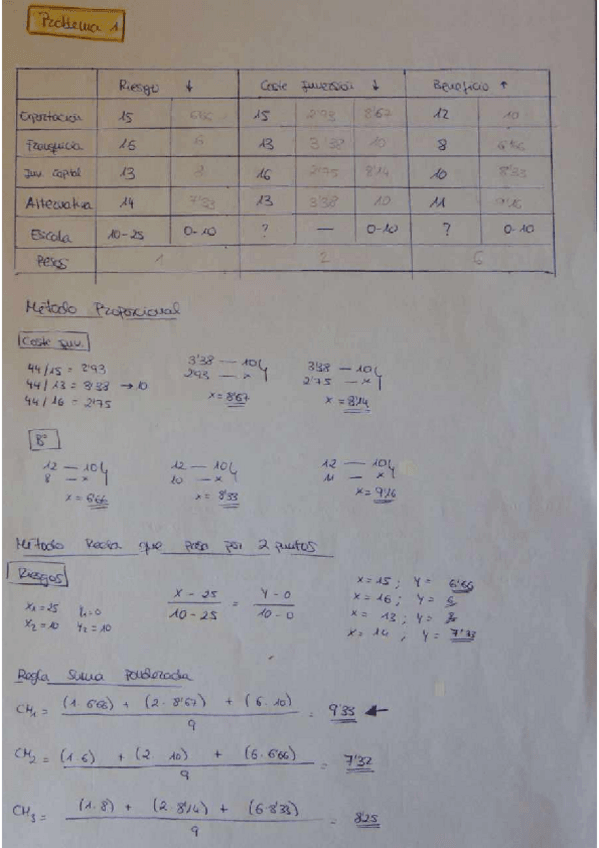 Problema 1
Riesgo ↓ Coste Inversión ↓ Beneficio ↑
Exportación 15 6'66 15 2'93 8'67 12 10
Franquicia 16 6 13 3'38 10 8 6'66
Inv. Capital 13 8 16 2'75 8'14 10 8'33
Alternativa 14 7'33 13 3'38 10 11 9'16
Escala 10-25 0-10 ? — 0-10 ? 0-10
Pesos 1 2 6
Método Proporcional
Coste Inv.
44/15 = 2'93
44/13 = 3'38 → 10
44/16 = 2'75
3'38 — 10
2'93 — x
x = 8'67
3'38 — 10
2'75 — x
x = 8'14
Bº
12 — 10
8 — x
x = 6'66
12 — 10
10 — x
x = 8'33
12 — 10
11 — x
x = 9'16
Método Recta que pasa por 2 puntos
Riesgos
x1 = 25 Y1 = 0
x2 = 10 Y2 = 10
x - 25 / 10 - 25 = Y - 0 / 10 - 0
x = 15 ; Y = 6'66
x = 16 ; Y = 6
x = 13 ; Y = 8
x = 14 ; Y = 7'33
Regla Suma Ponderada
CM1 = (1 · 6'66) + (2 · 8'67) + (6 · 10) / 9 = 9'33 ←
CM2 = (1 · 6) + (2 · 10) + (6 · 6'66) / 9 = 7'32
CM3 = (1 · 8) + (2 · 8'14) + (6 · 8'33) / 9 = 8'25